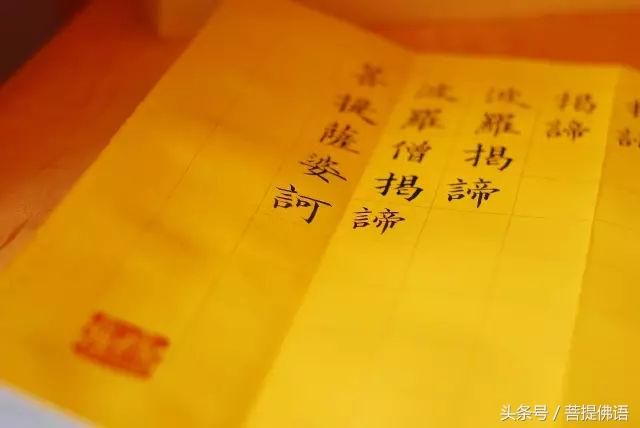 揭諦
波羅揭諦
波羅僧揭諦
菩提薩婆訶
头条号 / 菩提佛语